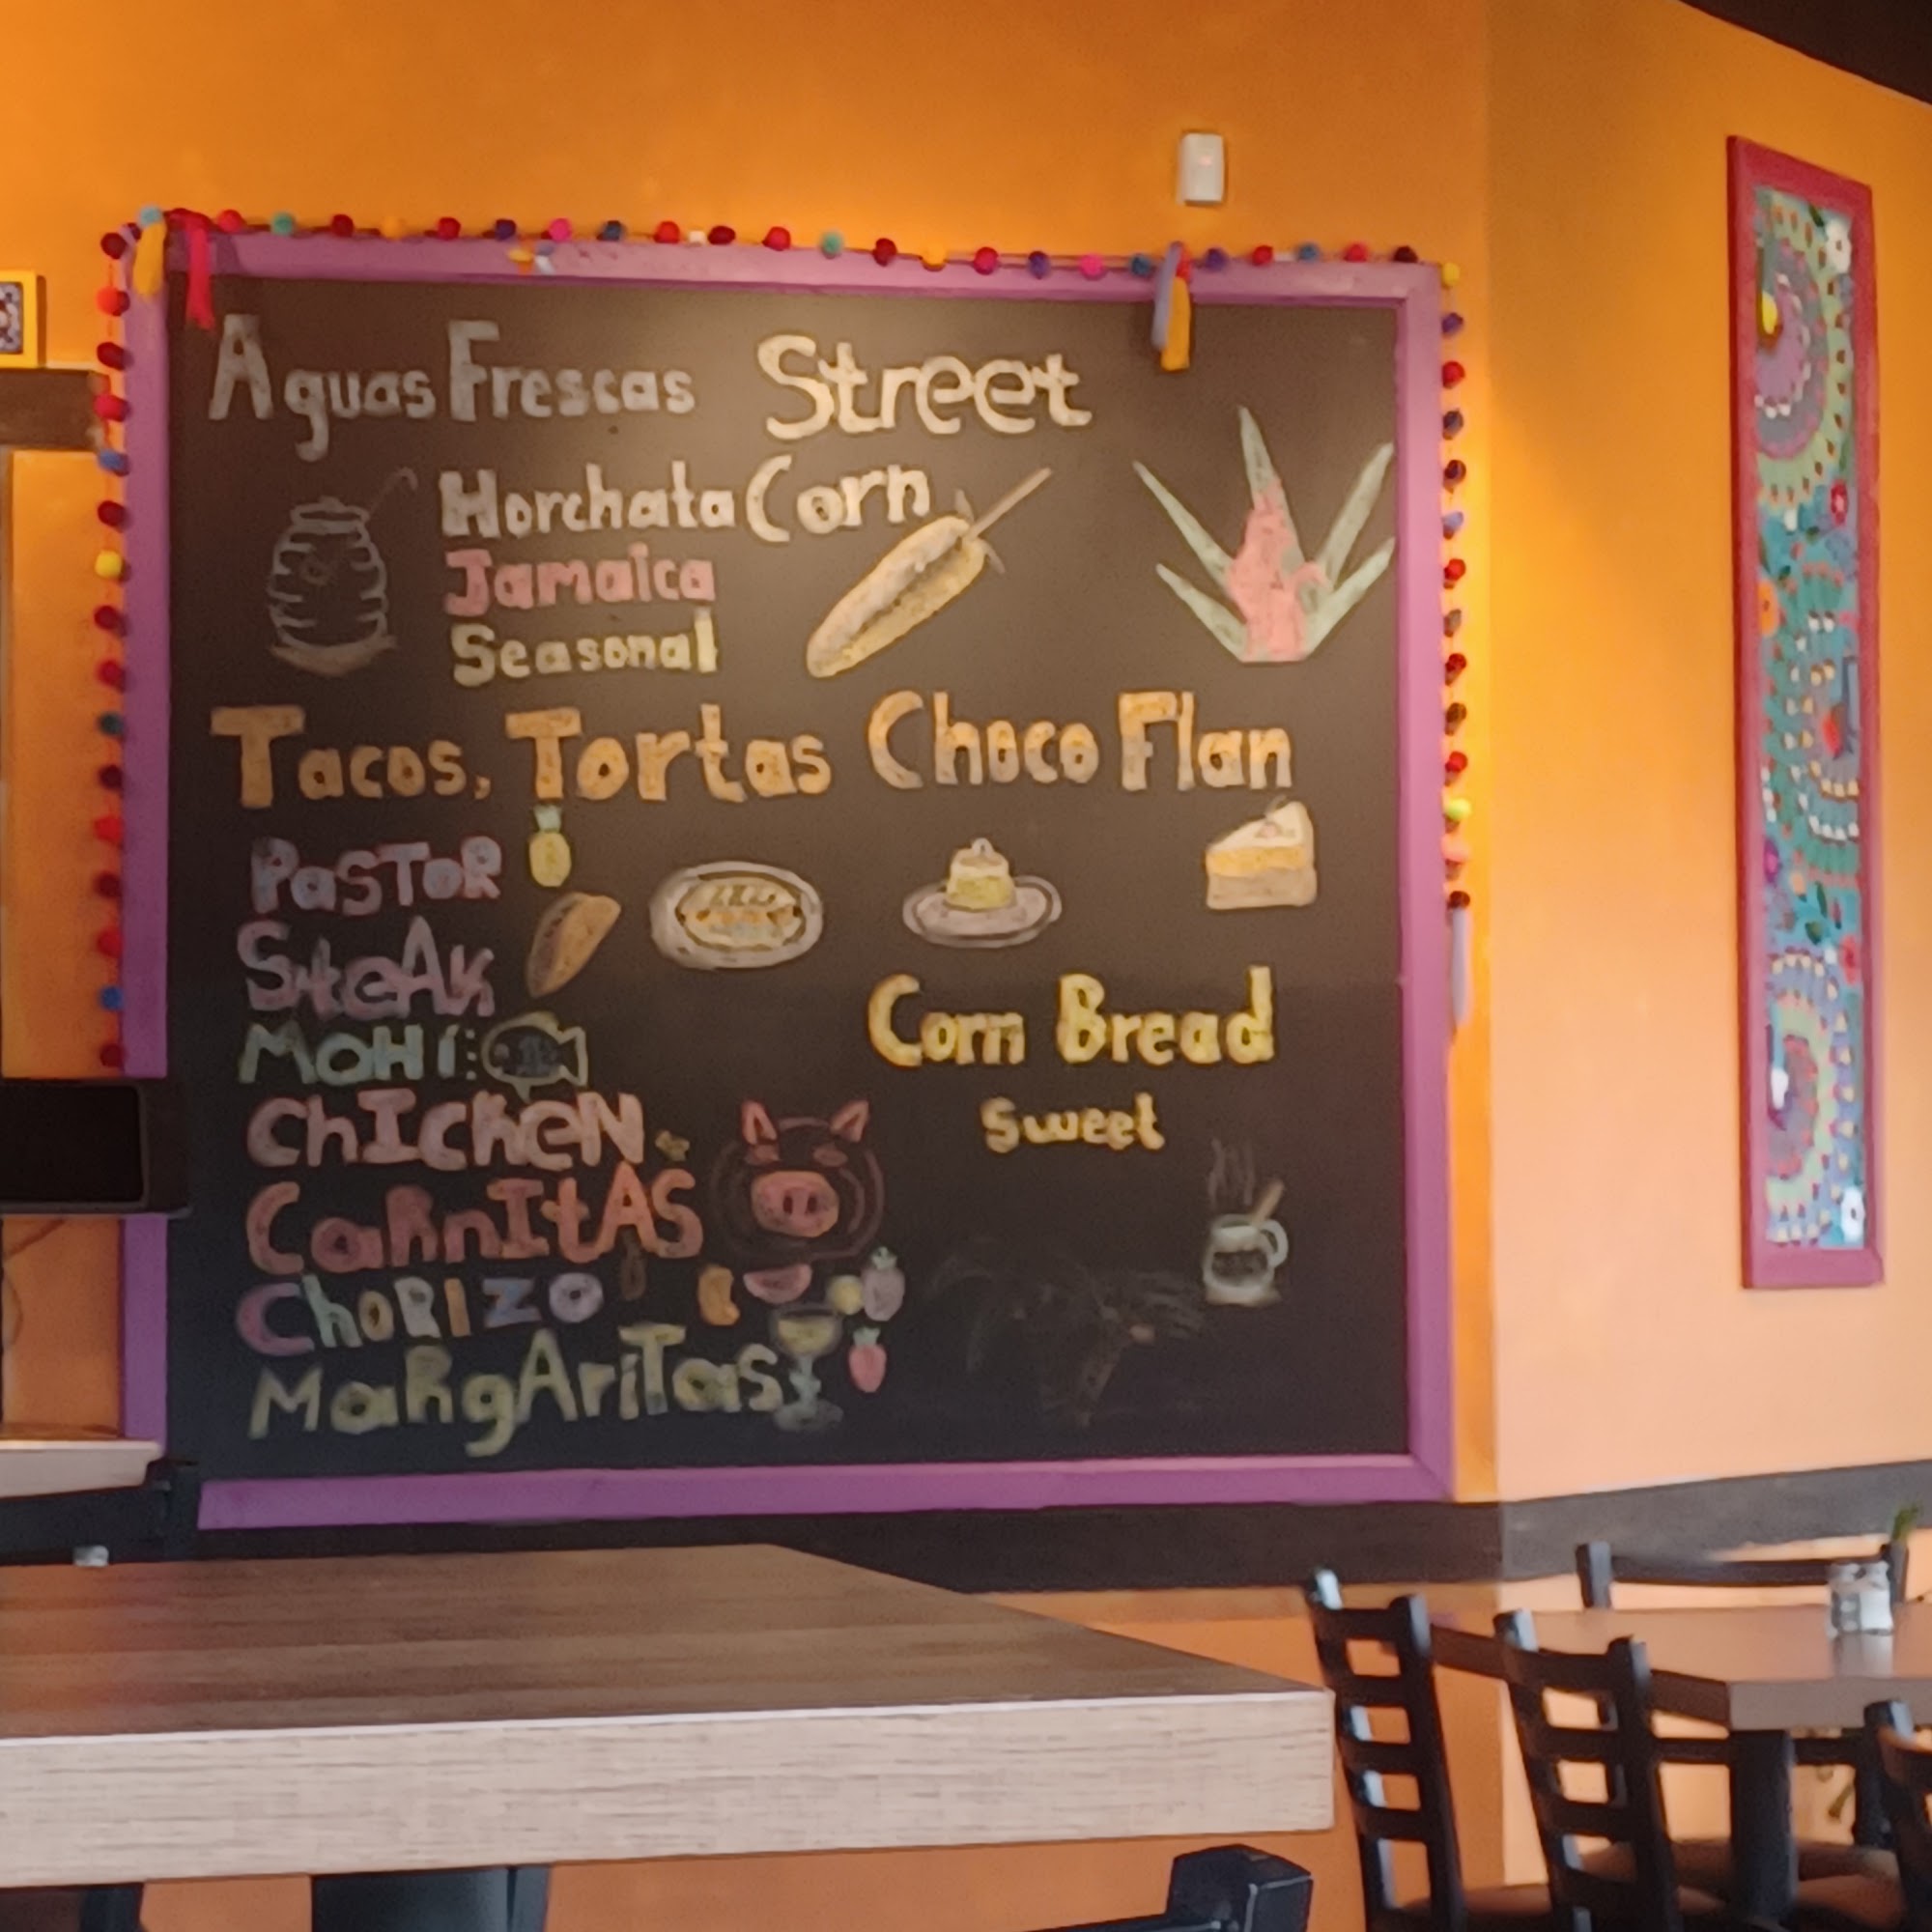 Aguas Frescas
Horchata
Jamaica
Seasonal
Street
Corn
Tacos, Tortas
PaSToR
SteAk
MaHI
ChIckeN
CaRnItAS
ChoRIzo
MaRgAriTas
Choco Flan
Corn Bread
Sweet